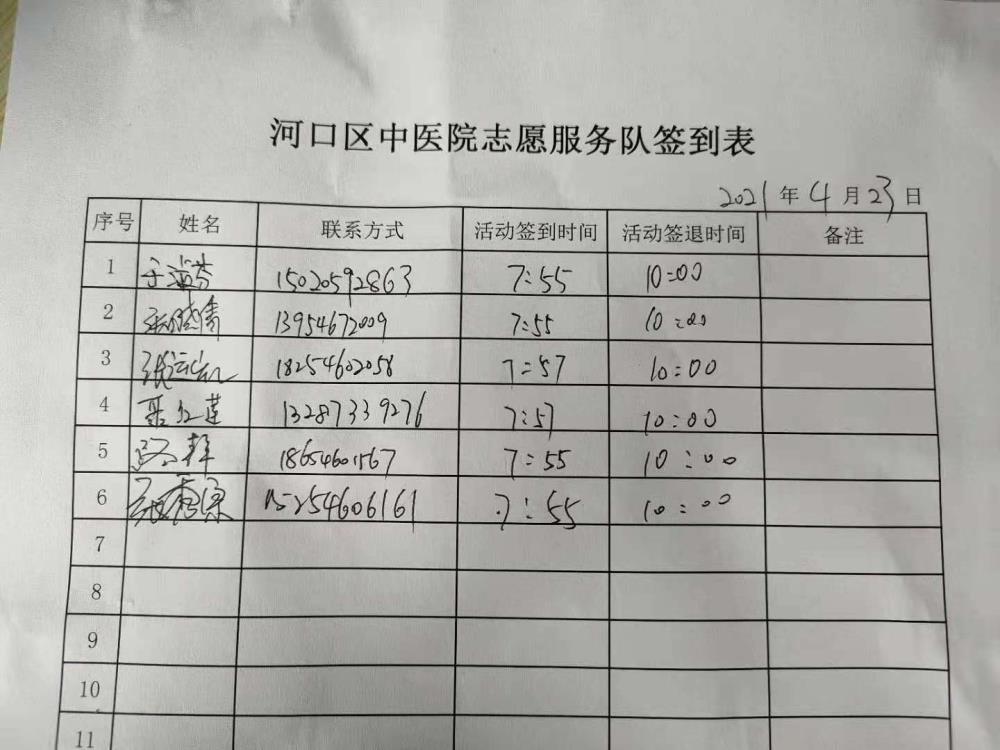 河口区中医院志愿服务队签到表
2021年4月23日
序号 姓名 联系方式 活动签到时间 活动签退时间 备注
1 15020592863 7:55 10:00
2 13954672009 7:55 10:00
3 18254602058 7:57 10:00
4 聂红莲 13287339276 7:57 10:00
5 18654601567 7:55 10:00
6 15254606161 7:55 10:00
7
8
9
10
11